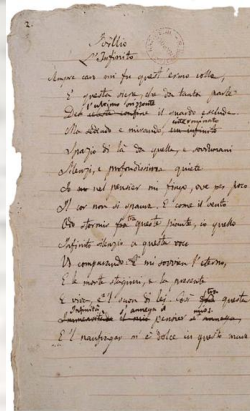 2.
Idillio
L'Infinito
Sempre caro mi fu quest'ermo colle,
E questa siepe, che da tanta parte
l'ultimo orizzonte
De celeste confine il guardo esclude
interminato
Ma sedendo e mirando, un infinito
Spazio di là da quella, e sovrumani
Silenzi, e profondissima quiete
Io nel pensier mi fingo, ove per poco
Il cor non si spaura. E come il vento
Odo stormir tra queste piante, io quello
Infinito silenzio a questa voce
Vo comparando: E mi sovvien l'eterno,
E le morte stagioni, e la presente
E viva, e 'l suon di lei. Così questa
Infinità s'annega il
Immensitade il mio pensier s'annega,
E 'l naufragar m'è dolce in questo mare